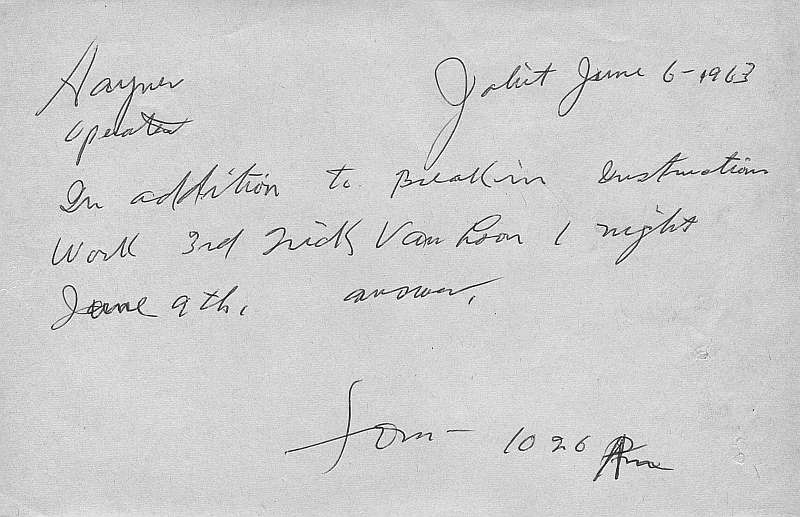 Joliet June 6-1963
Operator
In addition to Breakin instruction
Work 3rd trick Van Loon 1 night
June 9th. answer.
Tom- 1026